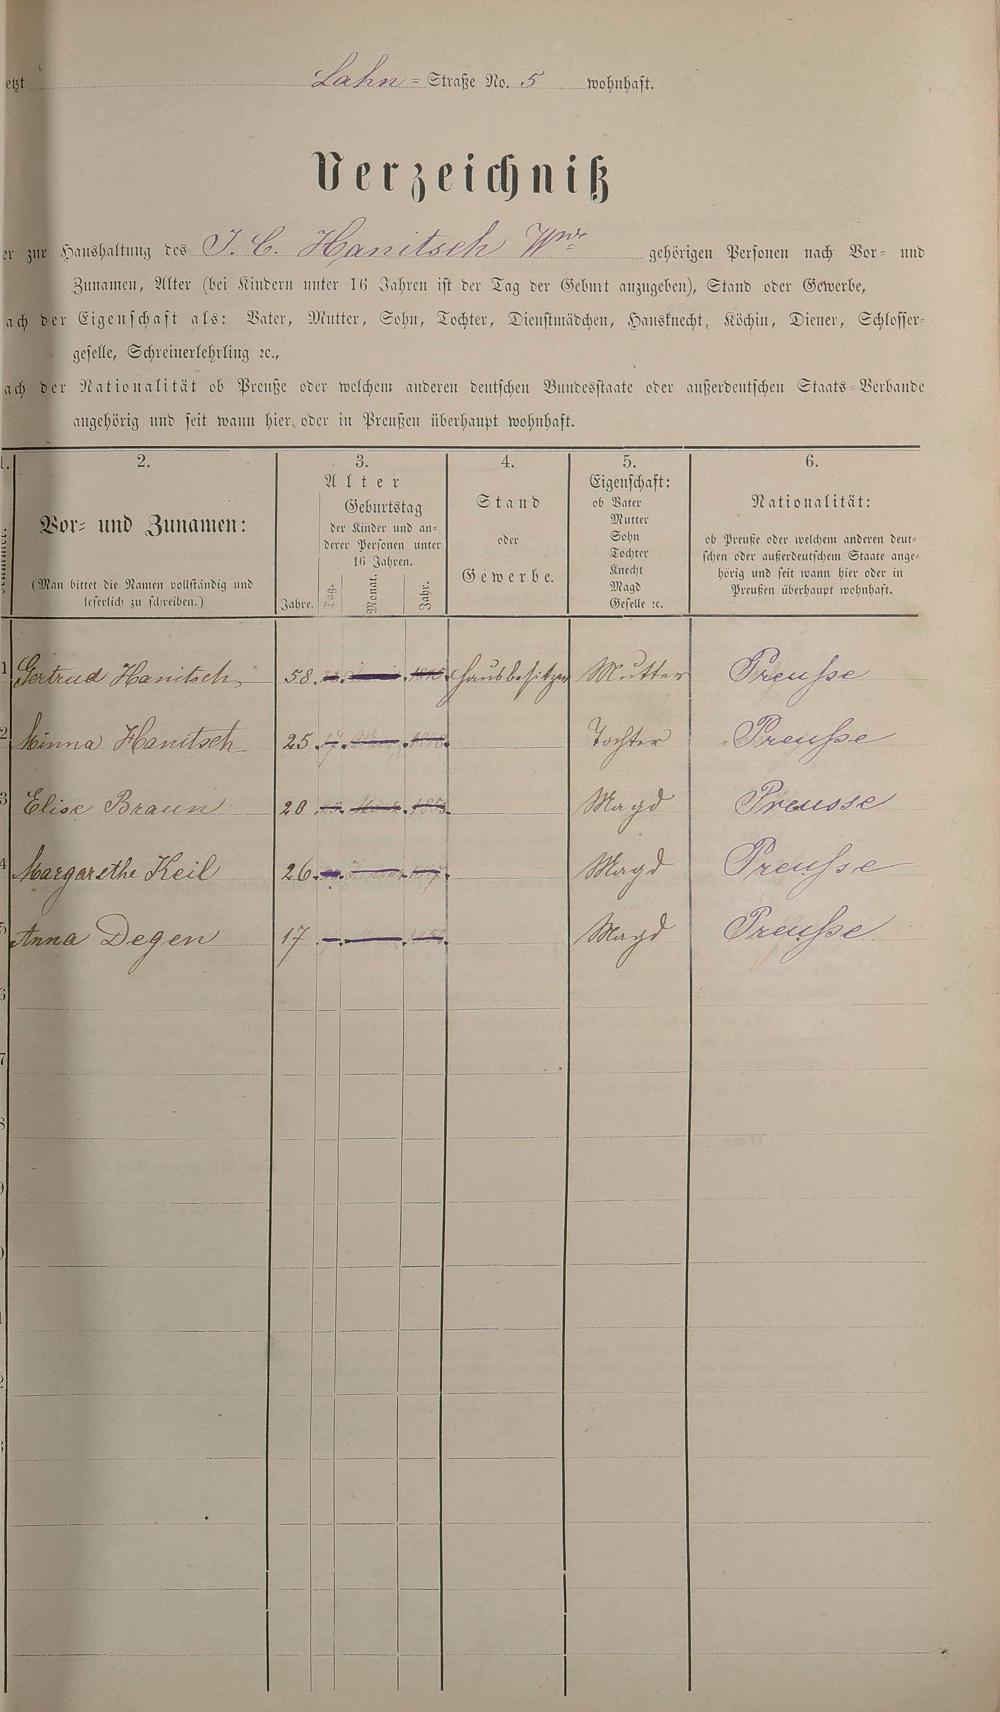 etzt Lahn = Straße No. 5 wohnhaft.
Verzeichniß
er zur Haushaltung des J. C. Hanitsch Wwe gehörigen Personen nach Vor- und
Zunamen, Alter (bei Kindern unter 16 Jahren ist der Tag der Geburt anzugeben), Stand oder Gewerbe,
ach der Eigenschaft als: Vater, Mutter, Sohn, Tochter, Dienstmädchen, Hausknecht, Köchin, Diener, Schlosser-
geselle, Schreinerlehrling ꝛc.,
ach der Nationalität ob Preuße oder welchem anderen deutschen Bundesstaate oder außerdeutschen Staats-Verbande
angehörig und seit wann hier oder in Preußen überhaupt wohnhaft.
1. 2. 3. 4. 5. 6.
Vor- und Zunamen:
(Man bittet die Namen vollständig und
leserlich zu schreiben.)
Alter
Jahre.
Geburtstag
der Kinder und an-
derer Personen unter
16 Jahren.
Tag. Monat. Jahr.
Stand
oder
Gewerbe.
Eigenschaft:
ob Vater
Mutter
Sohn
Tochter
Knecht
Magd
Geselle ꝛc.
Nationalität:
ob Preuße oder welchem anderen deut-
schen oder außerdeutschem Staate ange-
hörig und seit wann hier oder in
Preußen überhaupt wohnhaft.
1 Gertrud Hanitsch 58 Hausbesitzer Mutter Preuße
2 Minna Hanitsch 25 Tochter Preuße
3 Elise Braun 20 Magd Preusse
4 Margarethe Keil 26 Magd Preuße
5 Anna Degen 17 Magd Preuße
6
7
8
9